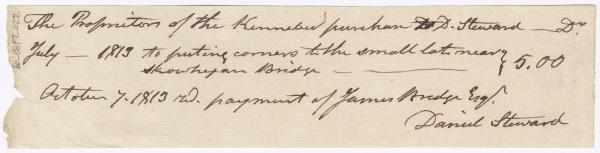 The Proprietors of the Kennebec purchase To D. Steward — Dr
July — 1813 to puting corners to the small lot near
Skowhegan Bridge — } 5.00
October 7. 1813 red. payment of James Bridge Esqr.
Daniel Steward